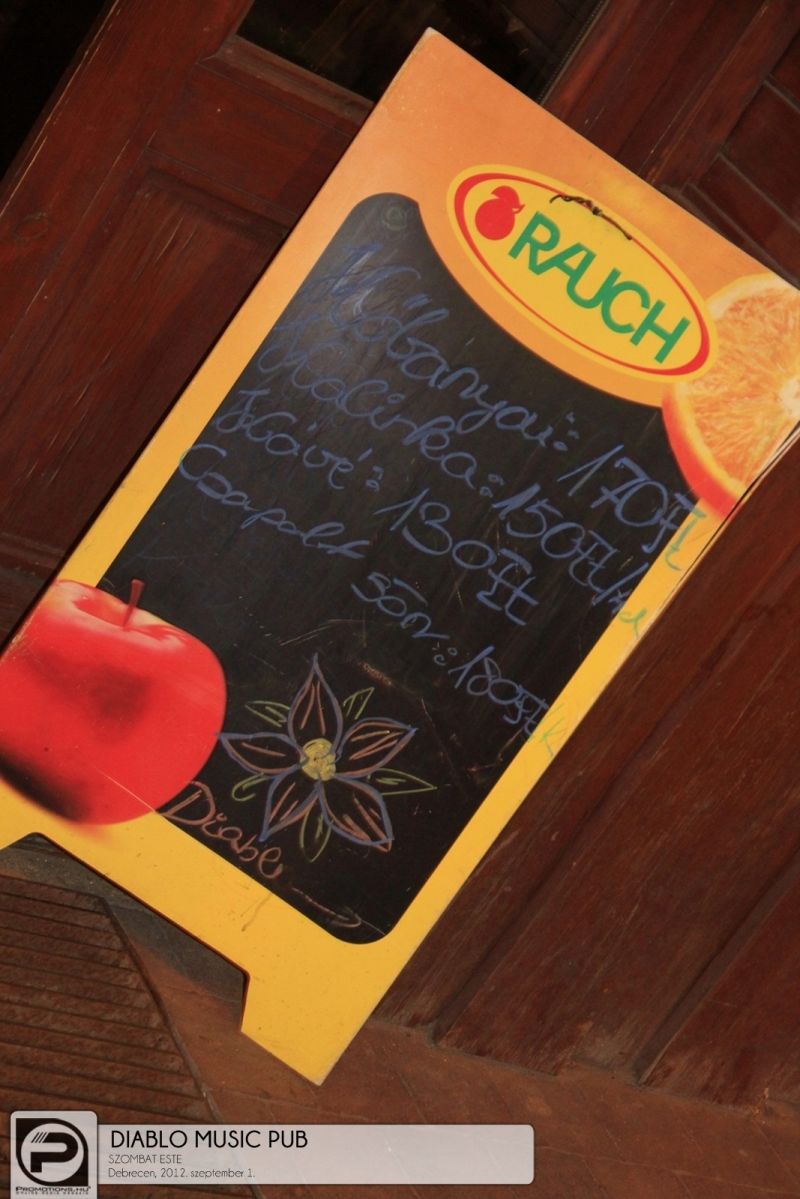 RAUCH
Kőbanyai: 170Ft
Kocirka: 150Ft/
Kávé: 130Ft
Csapolt sör: 180Ft/K
Diablo
P
PROMOTIONS.HU
DIABLO MUSIC PUB
SZOMBAT ESTE
Debrecen, 2012. szeptember 1.